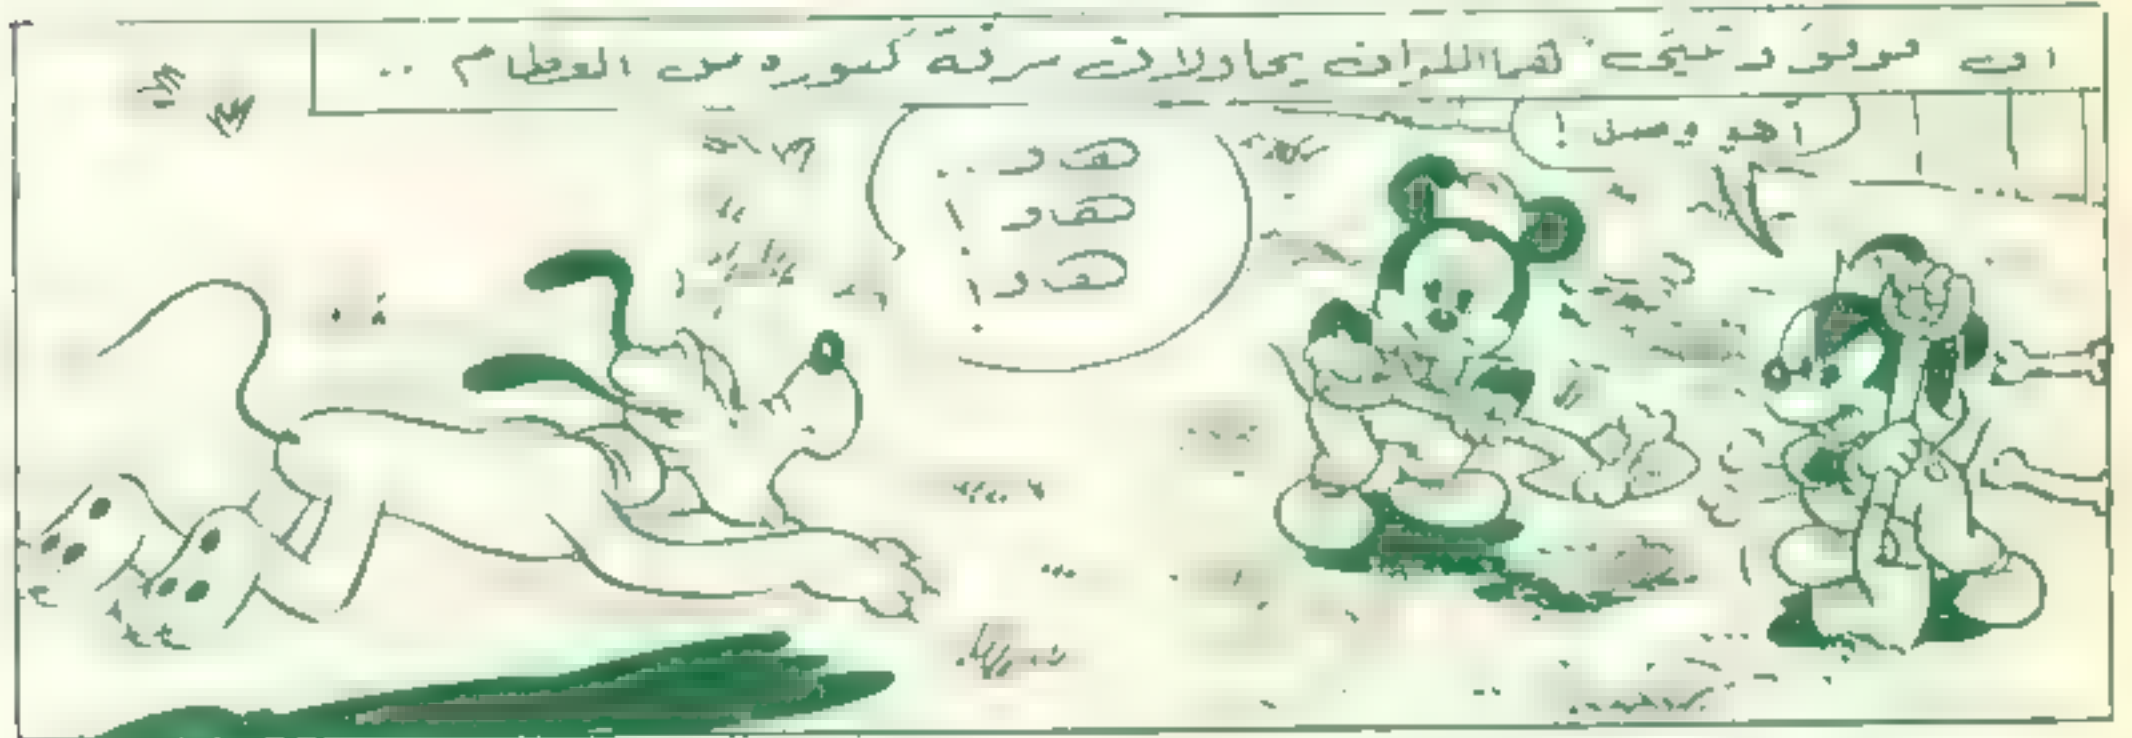 ان موفق وتيحى هما اللذان يحاولان سرقة كنوزه من العظام ..
أهو وصل !
هو ..
هو !
هو !